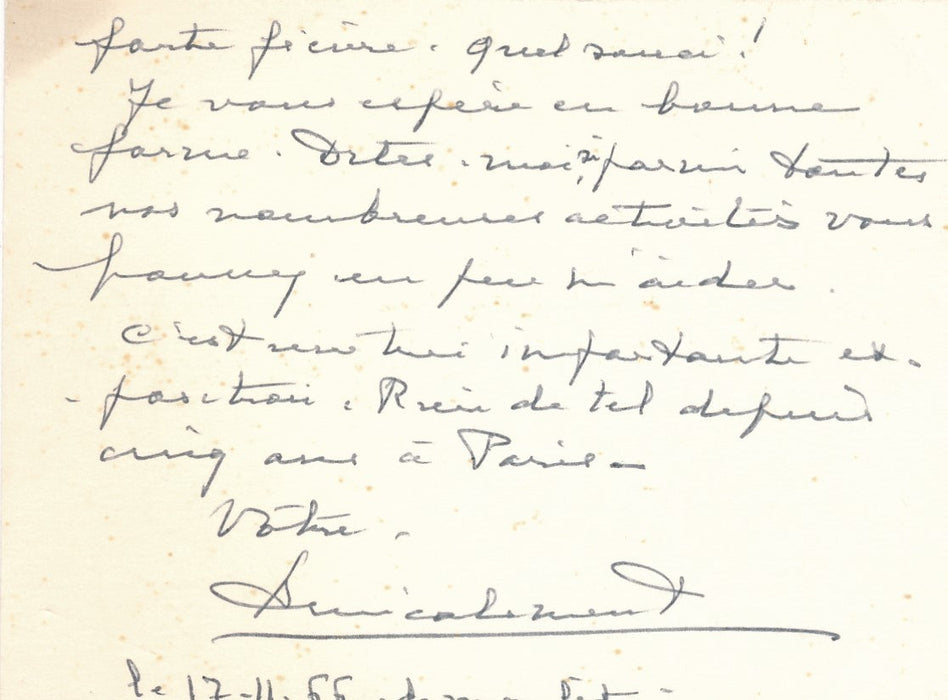 forte fièvre. Quel souci!
Je vous espère en bonne
forme. Dites-moi, si parmi toutes
vos nombreuses activités vous
pouvez un peu m'aider.
C'est une très importante ex-
-position. Rien de tel depuis
cinq ans à Paris -
Vôtre.
Amicalement
le 17-11-66